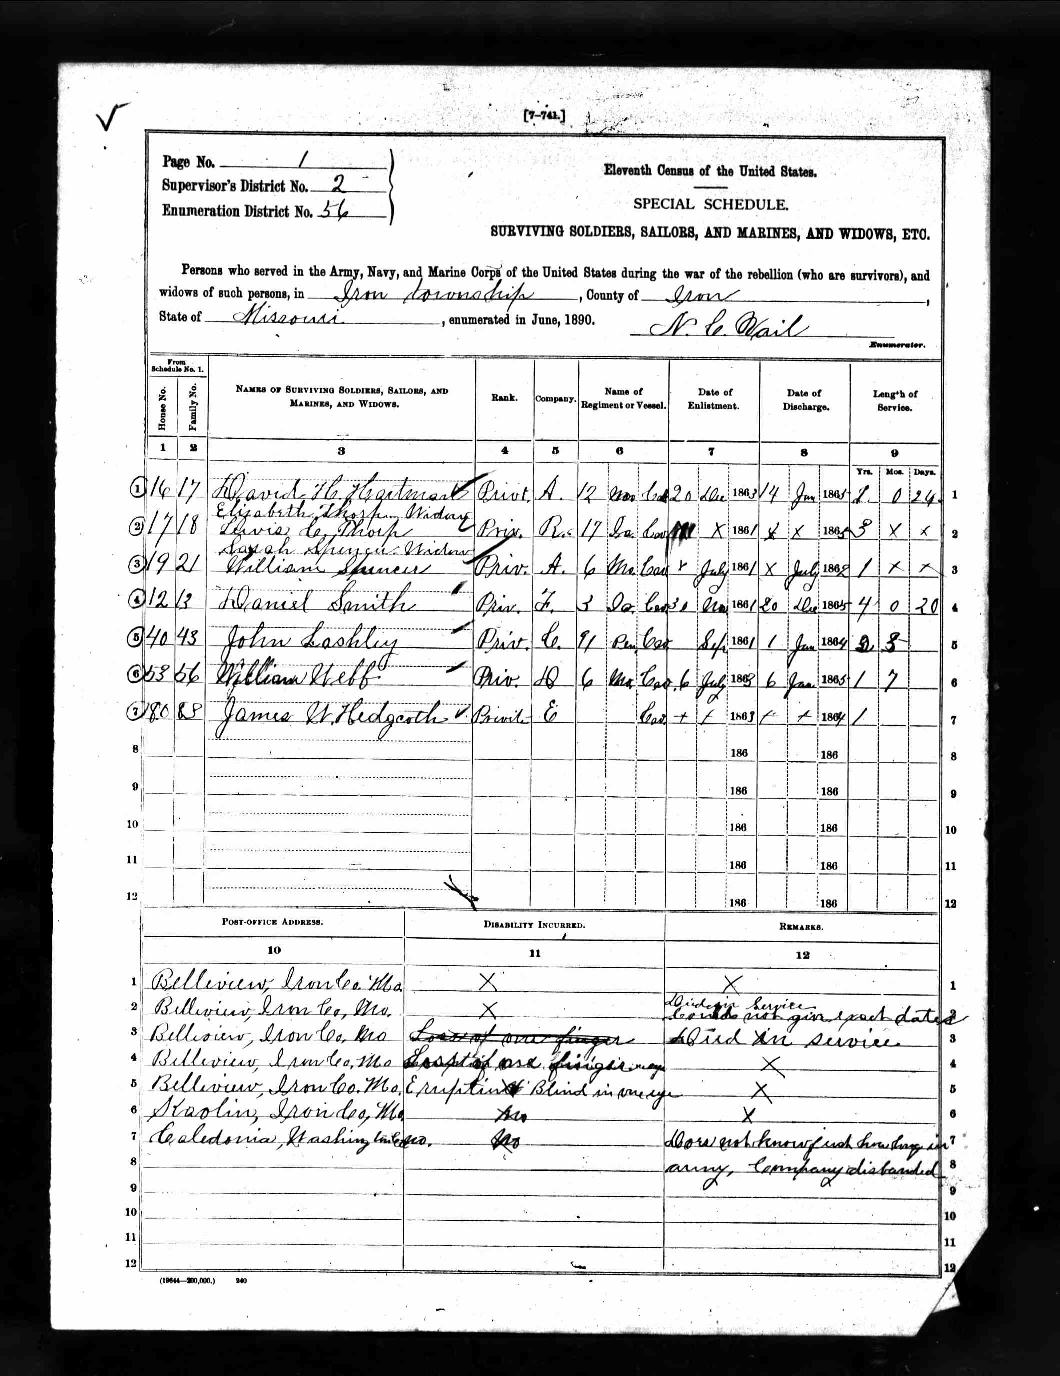 [7-741.]
Page No. 1
Supervisor's District No. 2
Enumeration District No. 56
Eleventh Census of the United States.
SPECIAL SCHEDULE.
SURVIVING SOLDIERS, SAILORS, AND MARINES, AND WIDOWS, ETC.
Persons who served in the Army, Navy, and Marine Corps of the United States during the war of the rebellion (who are survivors), and
widows of such persons, in Iron township, County of Iron,
State of Missouri, enumerated in June, 1890. N. C.
Enumerator.
From Schedule No. 1.
House No. Family No. NAMES OF SURVIVING SOLDIERS, SAILORS, AND MARINES, AND WIDOWS. Rank. Company. Name of Regiment or Vessel. Date of Enlistment. Date of Discharge. Length of Service.
1 2 3 4 5 6 7 8 9
Yrs. Mos. Days.
1 16 17 David H. Hartman Privt. A. 12 Mo Cav 20 Dec 1863 14 Jan 186 0 24 1
Elizabeth Thorp Widow
2 17 18 Lewis C. Thorp Priv. 17 Ia. Cav X 1861 X X 186 3 X X 2
Sarah Spencer Widow
3 19 21 William Spencer Priv. A. 6 Mo Cav X July 1861 X July 1862 1 X X 3
4 12 13 Daniel Smith Priv. F. 3 Ia. Cav 30 1861 20 Dec 1865 4 0 20 4
5 40 43 John Lashley Priv. C. 91 Pen Cav Sep 1861 1 Jan 1864 2 3 5
6 53 56 William Webb Priv. D 6 Mo Cav 6 July 1863 6 Jan 1865 1 7 6
7 80 83 James W. Hedgcoth Privit. E Cav + + 1863 + + 1864 1 7
8 186 186 8
9 186 186 9
10 186 186 10
11 186 186 11
12 186 186 12
POST-OFFICE ADDRESS. DISABILITY INCURRED. REMARKS.
10 11 12
1 Belleview, Iron Co. Mo X X 1
2 Belleview, Iron Co, Mo. X Died in Service
Could not give exact dates 2
3 Belleview, Iron Co, Mo Loss of one finger Died in service 3
4 Belleview, Iron Co. Mo Loss of one finger X 4
5 Belleview, Iron Co. Mo. Eruption Blind in one eye X 5
6 Kaolin, Iron Co, Mo No X 6
7 Caledonia, Washington Co Mo. No Does not know just how long in 7
8 army, Company disbanded 8
9 9
10 10
11 11
12 12
(19644—200,000.) 240